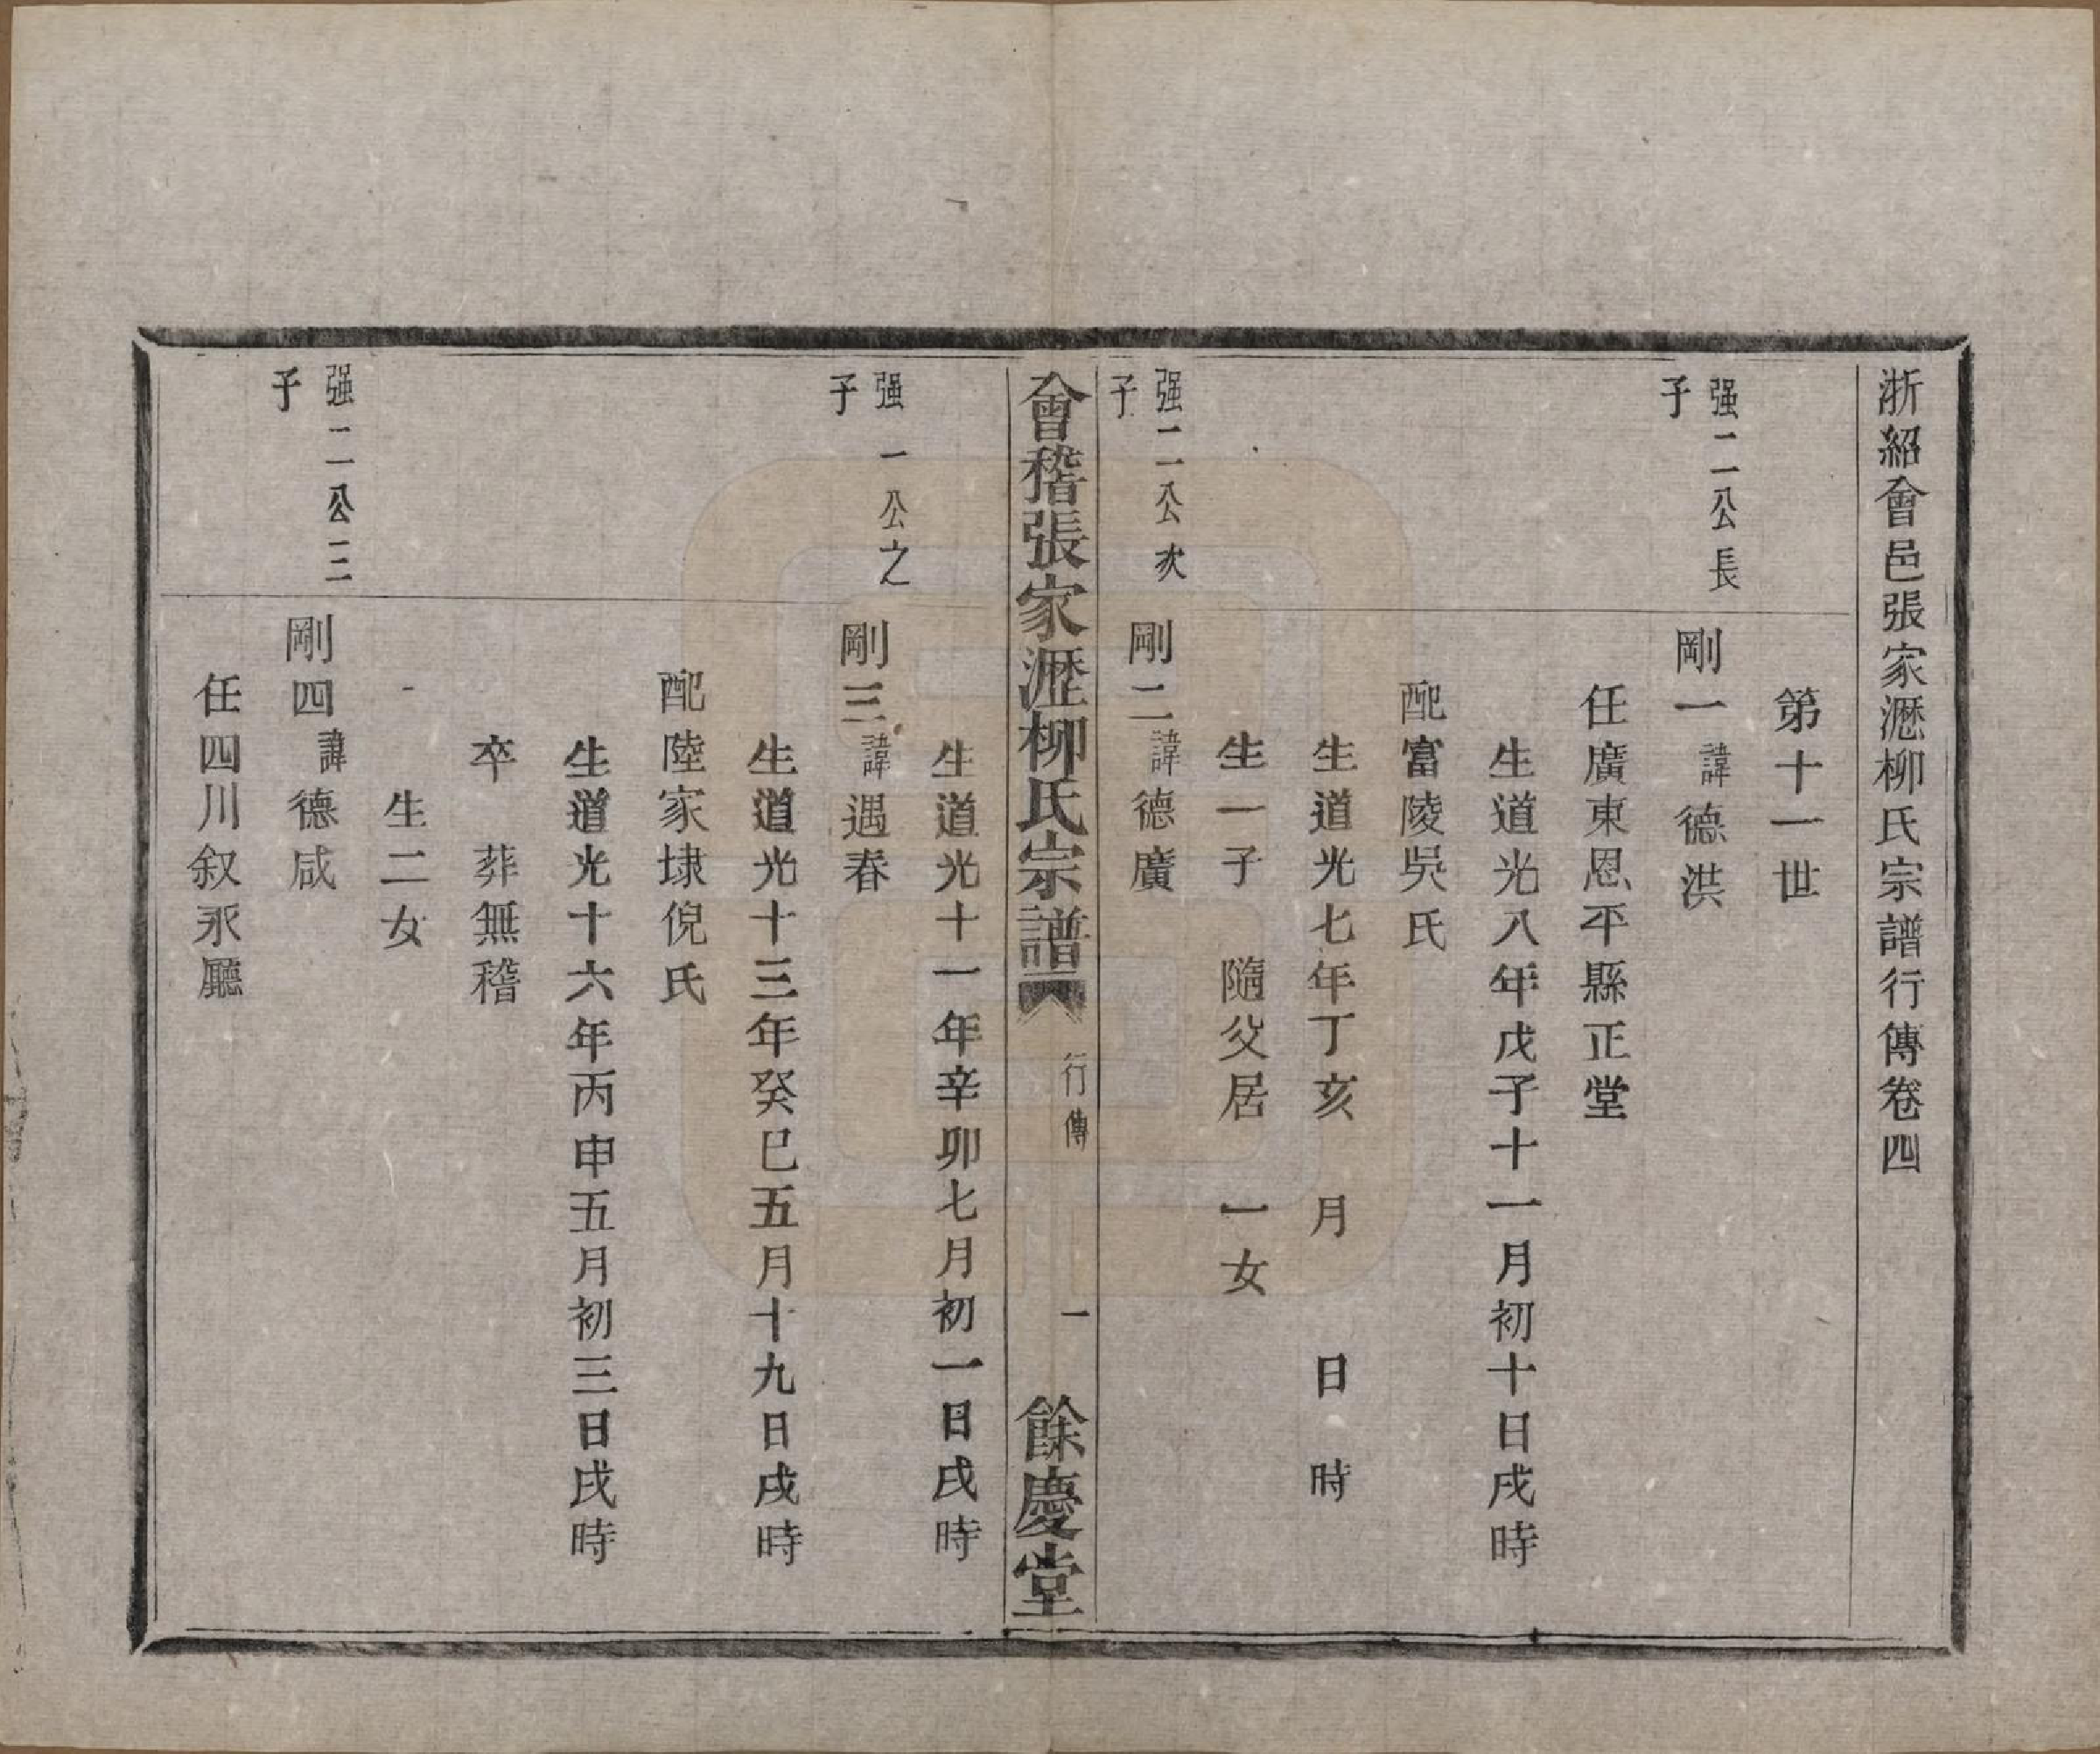 浙紹會邑張家瀝柳氏宗譜行傳卷四
第十一世
强二公長子
剛一諱德洪
任廣東恩平縣正堂
生道光八年戊子十一月初十日戌時
配富陵吳氏
生道光七年丁亥 月 日 時
生一子 隨父居 一女
强二公次子
剛二諱德廣
會稽張家瀝柳氏宗譜 行傳 一 餘慶堂
生道光十一年辛卯七月初一日戌時
强一公之子
剛三諱遇春
生道光十三年癸巳五月十九日戌時
配陸家埭倪氏
生道光十六年丙申五月初三日戌時
卒 葬無稽
生二女
强二公三子
剛四諱德咸
任四川叙永廳